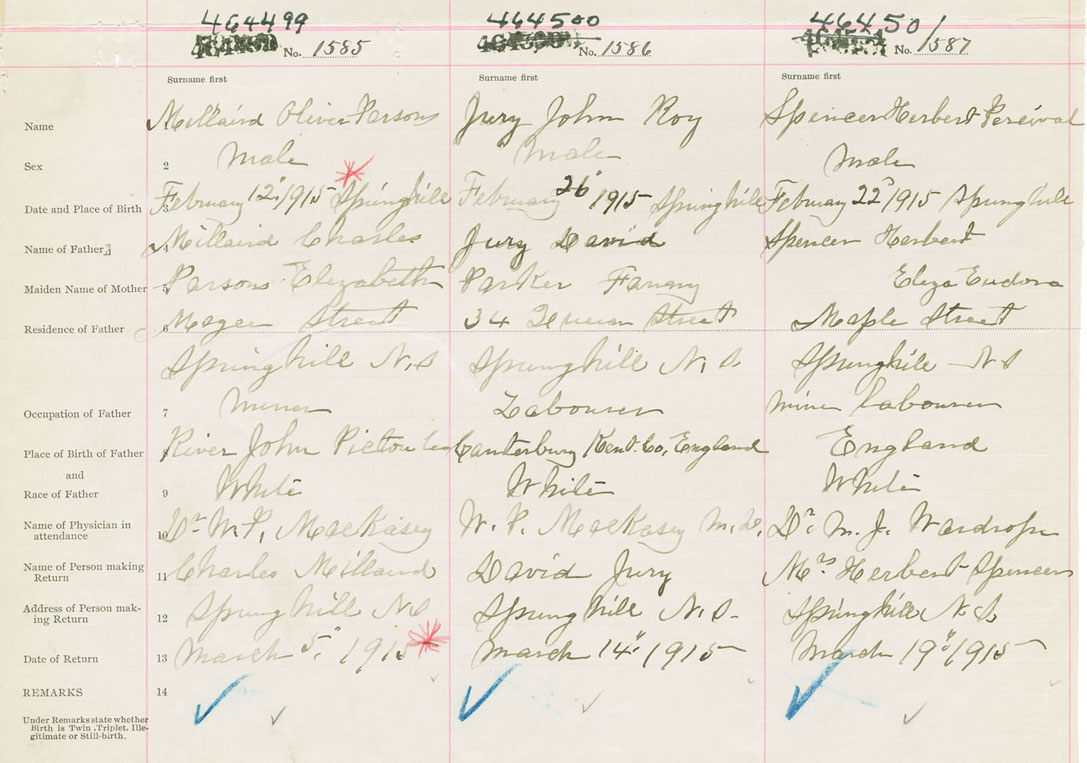 464499 464500 464501
No. 1585 No. 1586 No. 1587
Surname first Surname first Surname first
Name Millaird Oliver Parsons Jury John Roy Spencer Herbert Percival
Sex 2 Male Male Male
Date and Place of Birth February 12" 1915 Springhill February 26" 1915 Springhill February 22" 1915 Springhill
Name of Father Millaird Charles Jury David Spencer Herbert
Maiden Name of Mother Parsons Elizabeth Parker Fanny Eliza Eudora
Residence of Father 6 Magee Street 34 Street Maple Street
Springhill N.S Springhill N.S. Springhill N S
Occupation of Father 7 Miner Labourer mine labourer
Place of Birth of Father River John Pictou Co Canterbury Kent Co, England England
and
Race of Father 9 White White White
Name of Physician in attendance 10 Dr W.P. MacKasey W. P. MacKasey M.D. Dr. M. J. Wardrope
Name of Person making Return 11 Charles Millaird David Jury Mrs Herbert Spencer
Address of Person mak-ing Return 12 Springhill N S Springhill N.S. Springhill N.S.
Date of Return 13 March 5" 1915 March 14" 1915 March 19" 1915
REMARKS 14
Under Remarks state whether
Birth is Twin, Triplet, Ille-
gitimate or Still-birth.